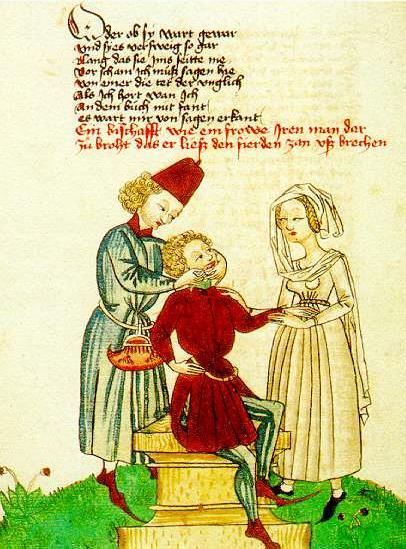 Oder ob sy wart gewar
Und sy es verschweig so gar
Alang das sie Jms seitte me
Vor scham ich müst sagen hie
von einer die tet der unglich
Als ich hort wan ich
An dem buch mit fant
es wart mir von sagen erkant
Ein bischafft wie ein frowe Jren man dar
zu broht das er ließ den fierden zan uß brechen